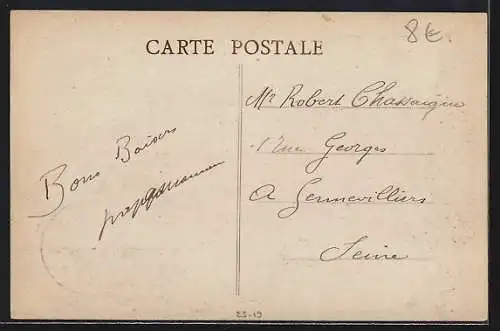 8€.
CARTE POSTALE
Mr Robert Chassaigne
1 rue Georges
A Gennevilliers
Seine
Bons Baisers
23-19